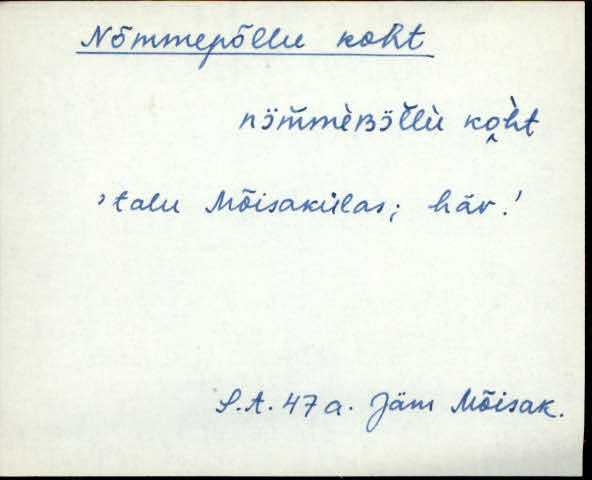 Nõmmepõllu koht
nö̆m̆mèʙö̆l̆lù ko̭h̀t
'talu Mõisakülas; häv.'
S.A. 47 a. Jäm Mõisak.